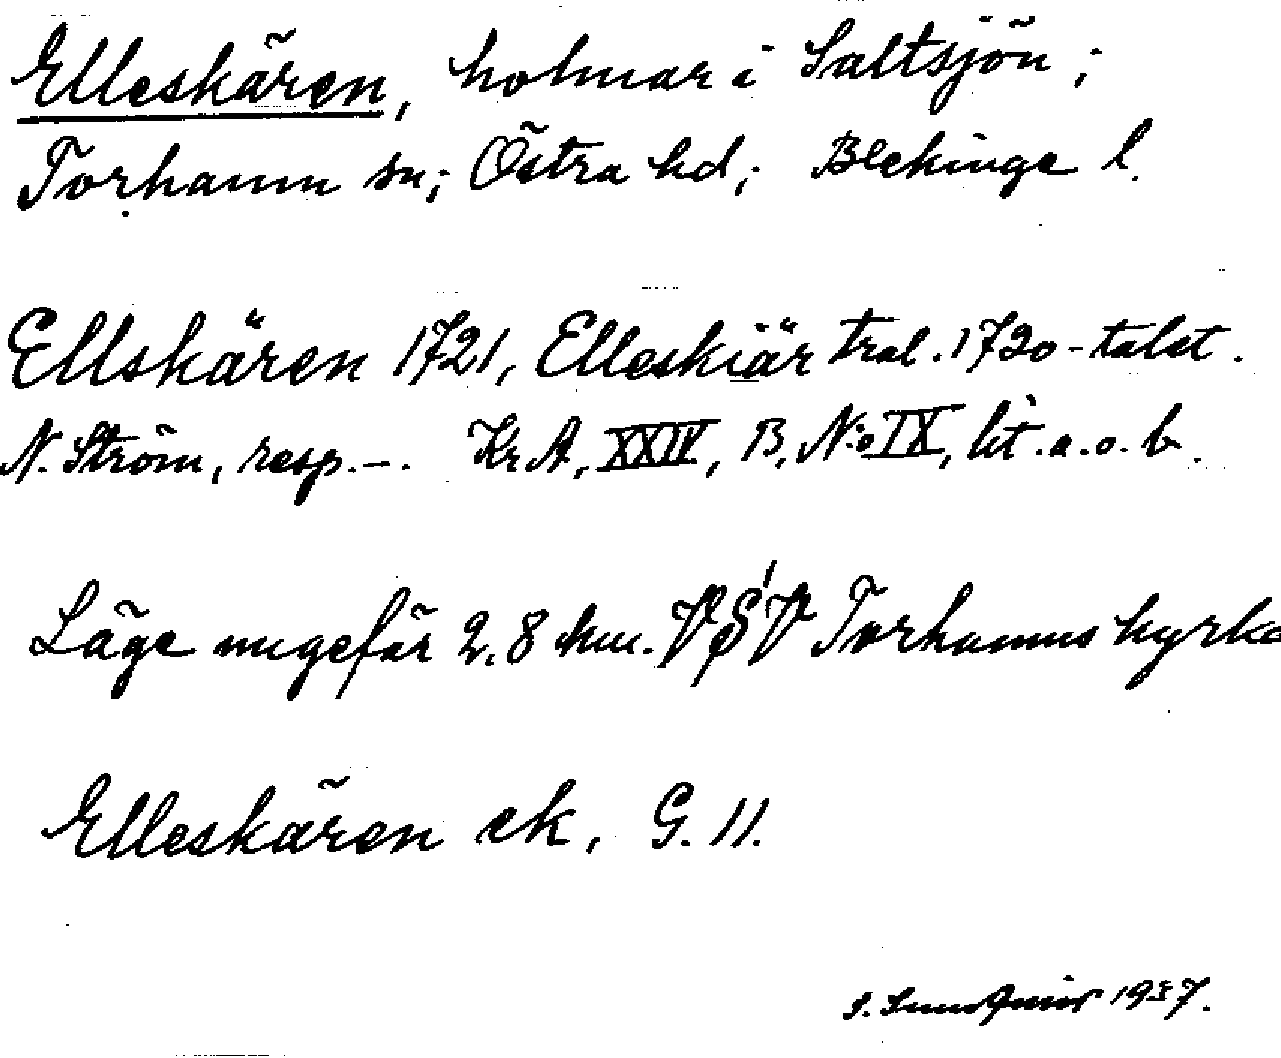 Elleskären, holmar i Saltsjön;
Torhamn sn; Östra hd; Blekinge l.
Ellskären 1721, Elleskiär tral. 1720-talet.
N. Ström, resp. –. Kr A, XXIV, B, N:o IX, lit. a. o. b.
Läge ungefär 2,8 km. VSV Torhamns kyrka
Elleskären ek, G. 11.
S. Sundqvist 1937.